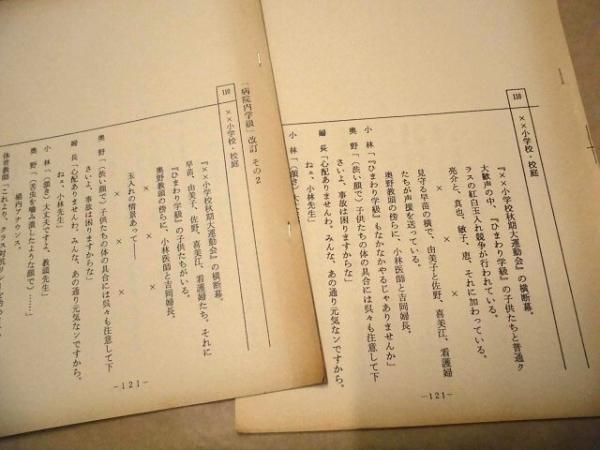 110
××小学校・校庭
『××小学校秋期大運動会』の横断幕。
大歓声の中、『ひまわり学級』の子供たちと普通ク
ラスの紅白玉入れ競争が行われている。
亮介と、真也、敏子、恵、それに加わっている。
× × ×
見守る早苗の横で、由美子と佐野、喜美江、看護婦
たちが声援を送っている。
奥野教頭の傍らに、小林医師と吉岡婦長。
小林「『ひまわり学級』もなかなかやるじゃありませんか」
奥野「(渋い顔で)子供たちの体の具合には呉々も注意して下
さいよ、事故は困りますからな」
婦長「心配ありませんわ。みんな、あの通り元気なンですから。
ねぇ、小林先生」
小林「(頷き)大丈夫
-121-
「病院内学級」改訂 その2
110
××小学校・校庭
『××小学校秋期大運動会』の横断幕。
早苗、由美子、佐野、喜美江、看護婦たち、それに
『ひまわり学級』の子供たちがいる。
奥野教頭の傍らに、小林医師と吉岡婦長。
× × ×
玉入れの情景あって──
× × ×
奥野「(渋い顔で)子供たちの体の具合には呉々も注意して下
さいよ、事故は困りますからな」
婦長「心配ありませんわ。みんな、あの通り元気なンですから。
ねぇ、小林先生」
小林「(頷き)大丈夫ですよ、教頭先生」
奥野「(苦虫を噛み潰したような顔で)……」
構内アナウンス。
体育教師「これより、クラス対抗リレーを
-121-